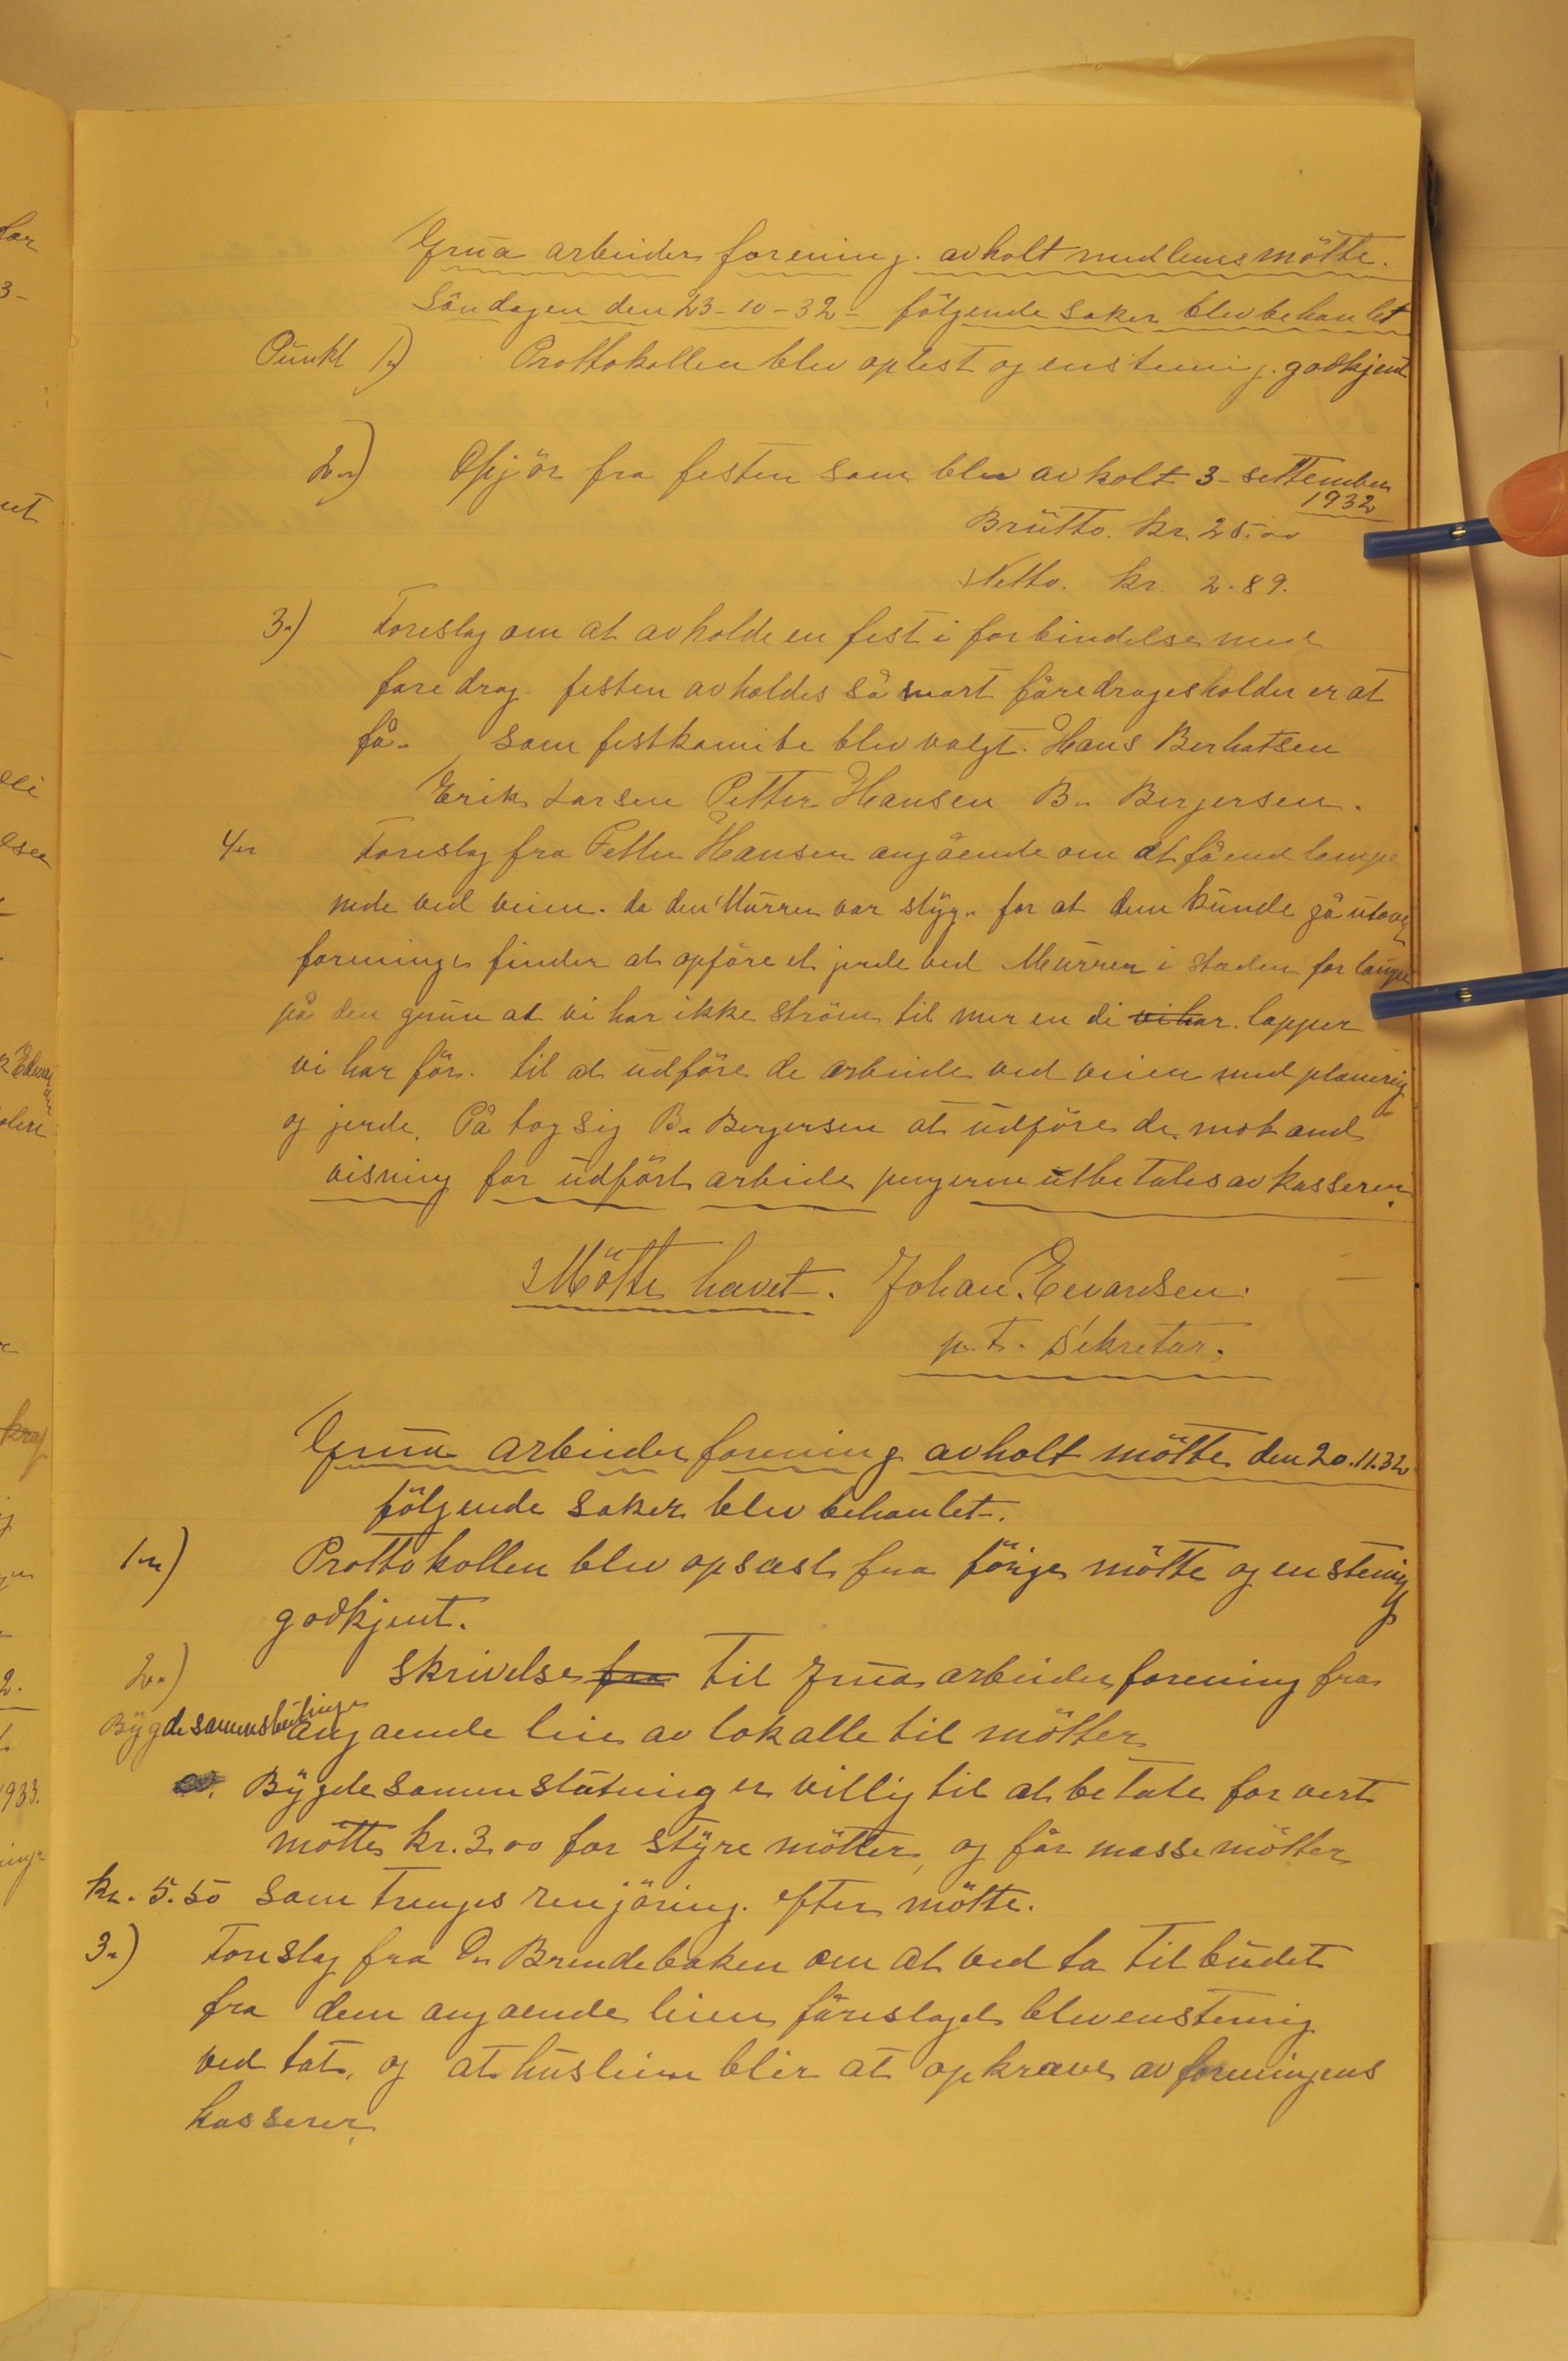 Grua arbeider forening. avholt medlemsmötte.
Söndagen den 23-10-32- fölgende saker blev behanlet
Punkt 1.) Prottokollen blev oplest og enstemig. godkjent
2.) Opjör fra festen som blev avholt 3- settember
1932
Brutto. kr. 25.00
Netto. kr. 2.89.
3.) Foreslag om at avholde en fest i forbindelse med
foredrag. festen avholdes så snart föredragesholder er at
få. Som festkomite blev valgt. Hans Berhatsen
Erik Larsen Petter Hansen B. Bergersen.
4. Foreslag fra Petter Hansen angående om at få end lampe
nede ved veien. da den Murren var styg. for at dem kunde gå utover
foreninge finder at opföre et jerde ved Murren i staden for lampe
på den grunn at vi har ikke ström til mer en de vi har. lapper
vi har för. til at udföre de arbeide ved veien med planerig
og jerde. På tog sig B. Bergersen at udföre de mot and
visning for udfört arbeide pengerne utbetales av kasseren.
Mötte hevet. Johan. Evansen.
p.t. Sekretær.
Grua arbeider forening avholt mötte den 20.11.32
fölgende saker blev behanlet.
1.) Prottokollen blev oplæst fra förige mötte og enstemig
godkjent.
2.) Skrivelse fra til grua arbeider forening fra
Bygdesamenslutninge angaende leie av lokalle til mötter
Bygdesamenslutning er villig til at betale for vert
mötte kr. 3.00 for styre mötter, og får masse mötter
kr. 5.50 som trenges renjöring. efter mötte.
3.) Foreslag fra O. Brendebaken om at ved ta tilbudet
fra dem angaende leien föreslaget blev enstemig
ved tat, og at husleien blir at opkræve av foreningens
kasserer.